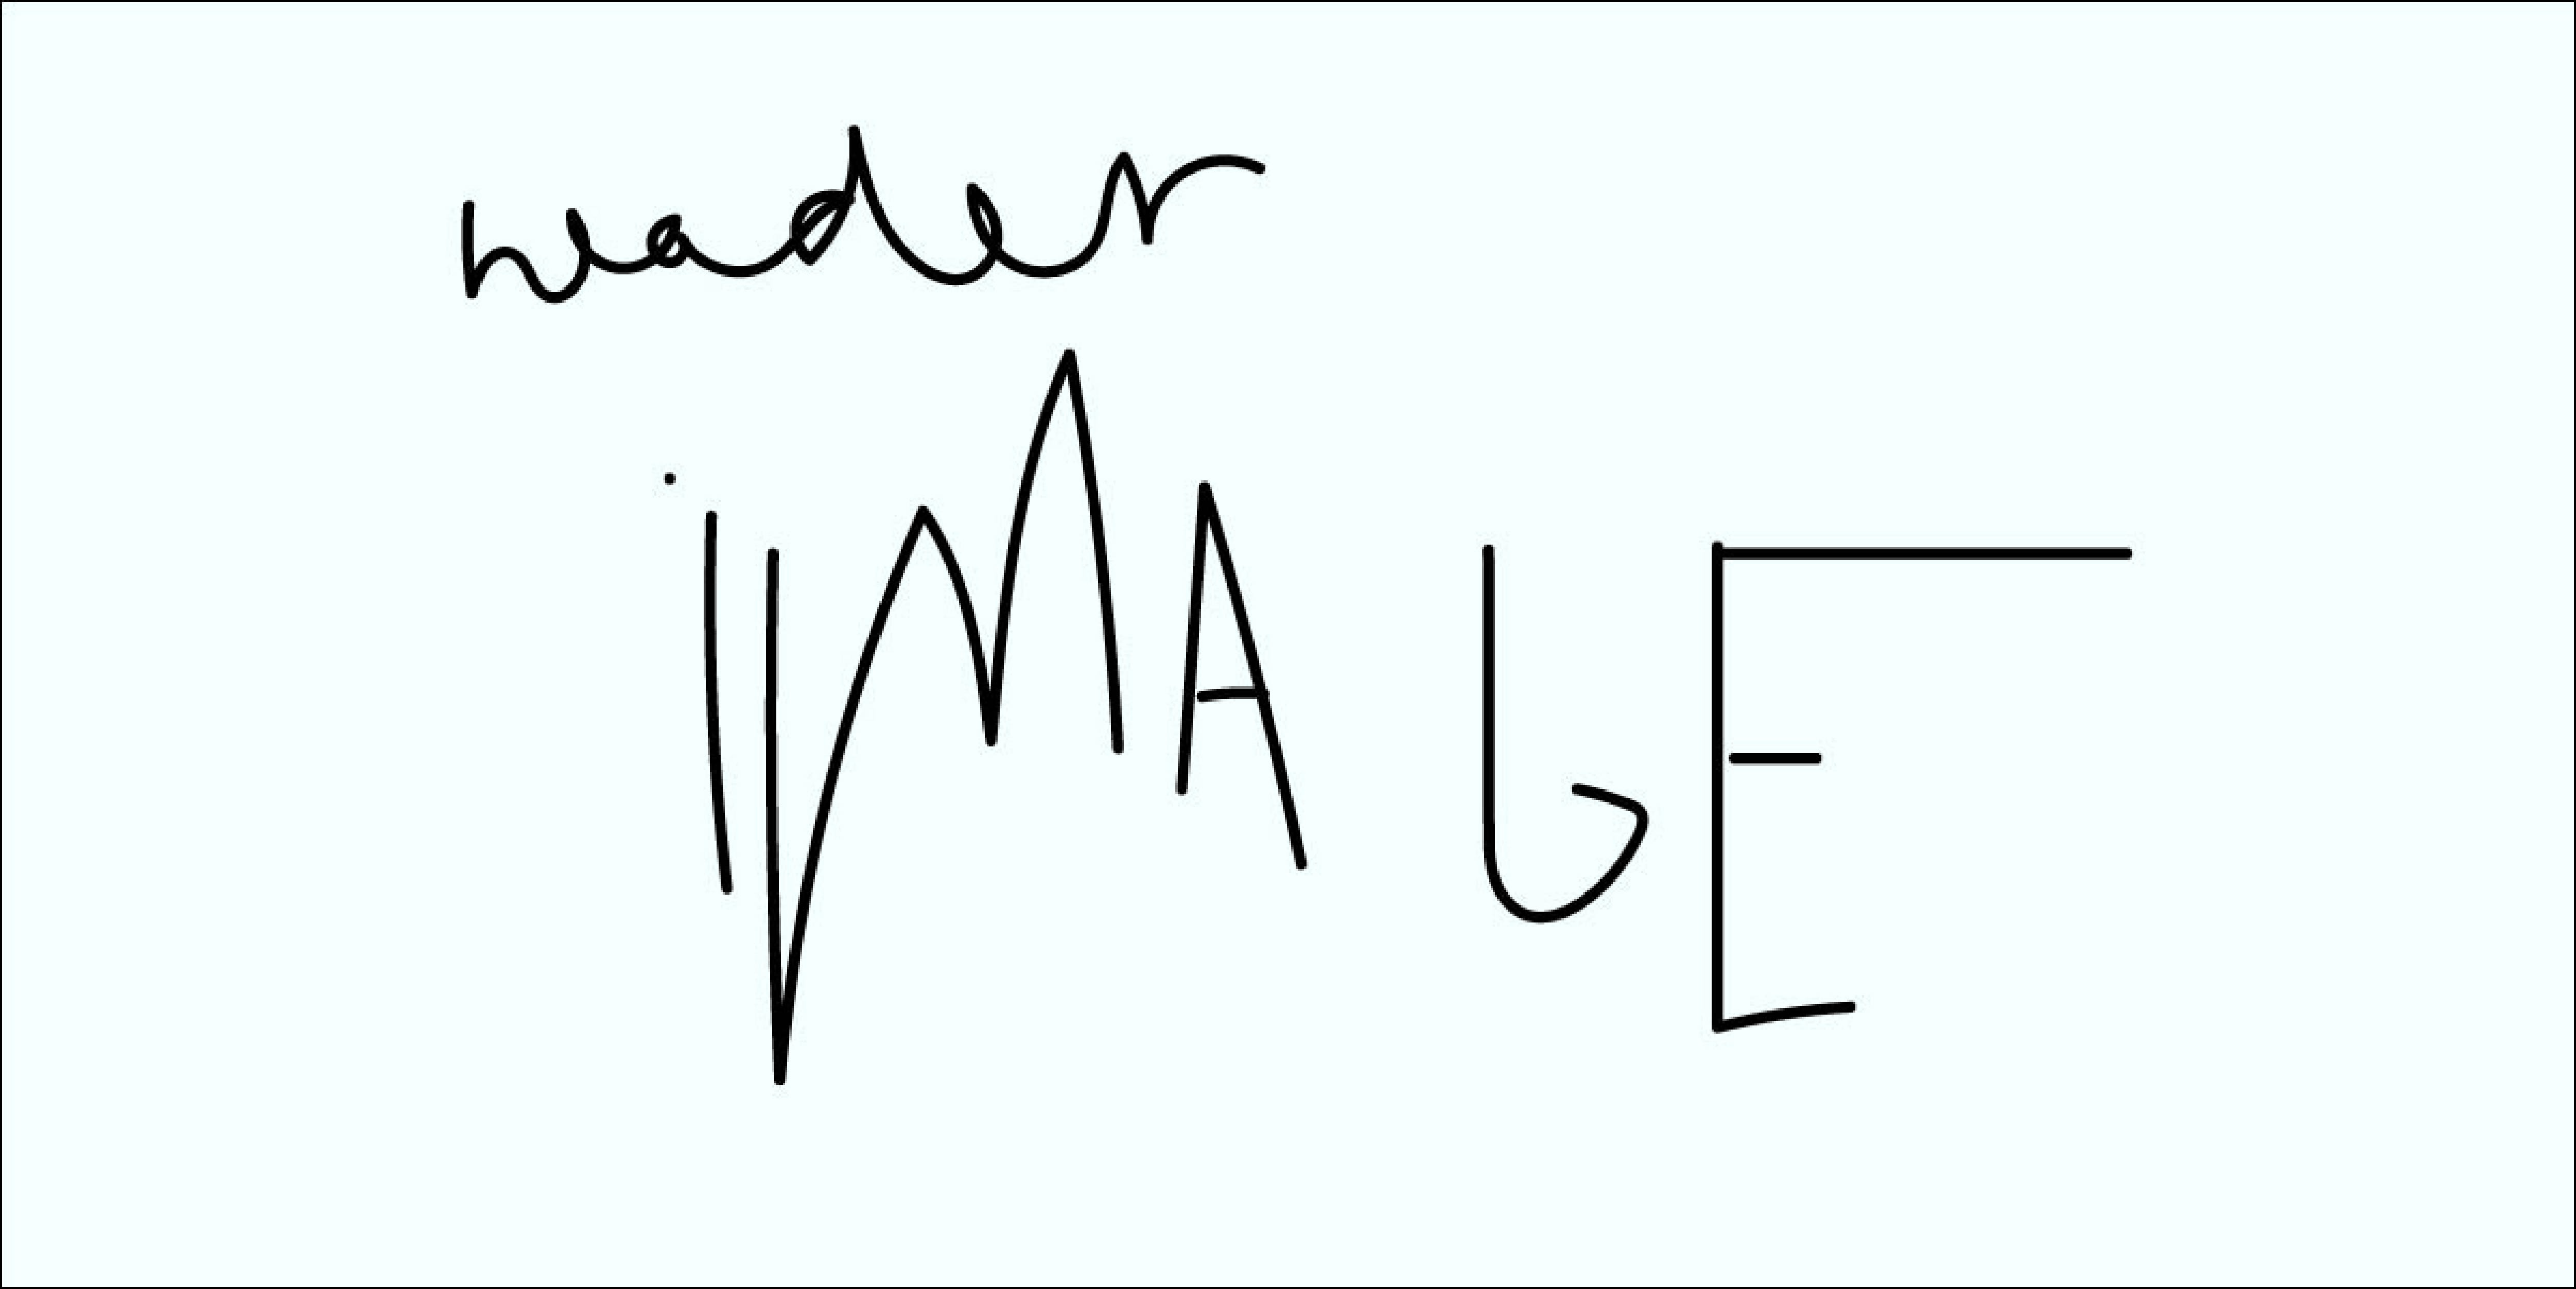 header
iMAGE